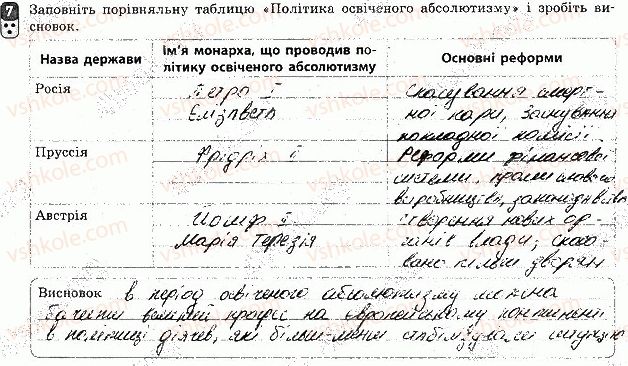 7 Заповніть порівняльну таблицю «Політика освіченого абсолютизму» і зробіть ви-
сновок.
Назва держави
Ім'я монарха, що проводив по-
літику освіченого абсолютизму
Основні реформи
Росія
Петро І
Єлізавета
Скасування смерт-
ної кари, заснування
покладної комісії
Пруссія
Фрідріх ІІ
Реформи фінансової
системи, промислового
виробництва, законодавства
Австрія
Йосиф ІІ
Марія Терезія
Створення нових ор-
ганів влади; скасо-
вано пільги дворян
Висновок в період освіченого абсолютизму можна
бачити великий прогрес на європейському континенті
в політиці діячів, які більш-менш стабілізували ситуацію
vshkole.com